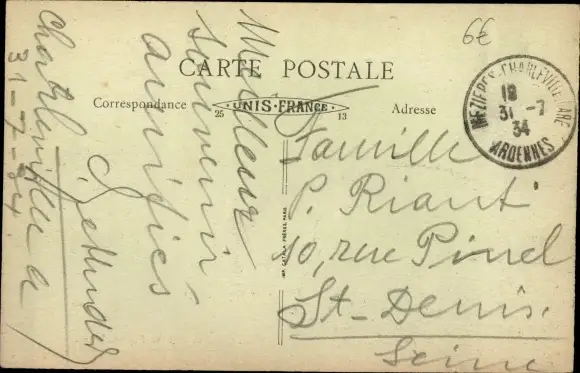 6€
CARTE POSTALE
Correspondance
25 UNIS-FRANCE 13
Adresse
MEZIERES-CHARLEVILLE GARE
18
31 -7
34
ARDENNES
Charleville
31-7-34
Meilleurs
souvenirs
amitiés
Famille
P. Riant
10, rue Pinel
St-Denis.
Seine